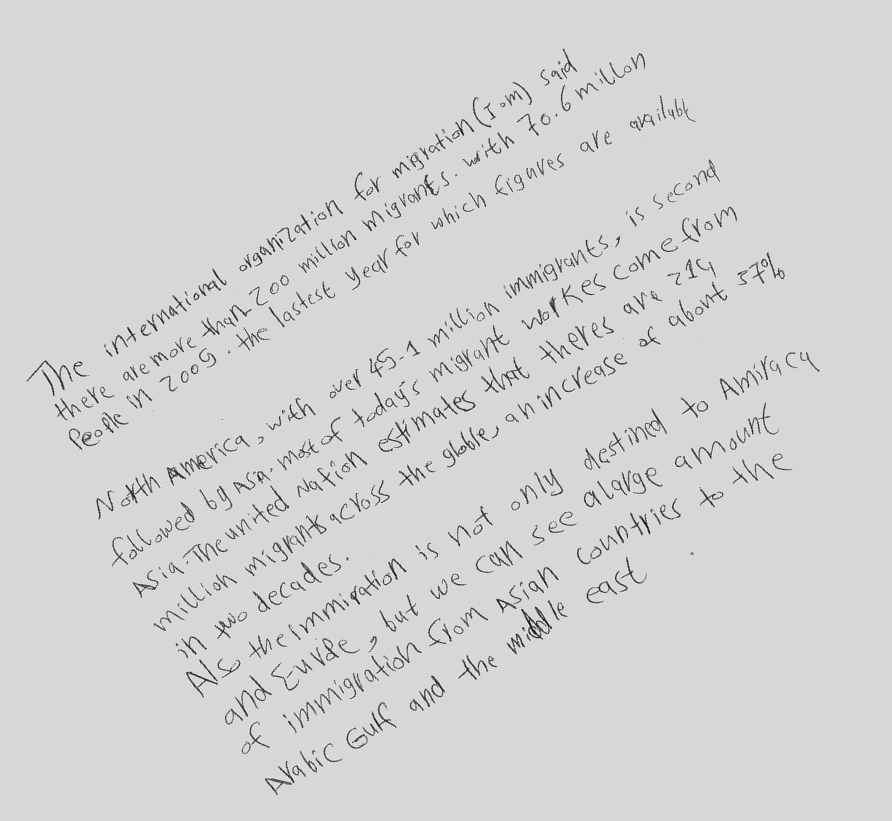 The international organization for migration (Iom) said
there are more than 200 million migrants. with 70.6 millon
People in 2005. the lastest year for which figures are availabt
North America, with over 45-1 million immigrants, is second
followed by Asia. most of today's migrant workes come from
Asia. The united Nation estimates that theres are 214
million migrants across the globle, an increase of about 37%
in two decades.
Also the immiration is not only destined to Amiracy
and Eurpe, but we can see a large amount
of immigration from Asian countries to the
Arabic Gulf and the middle east .